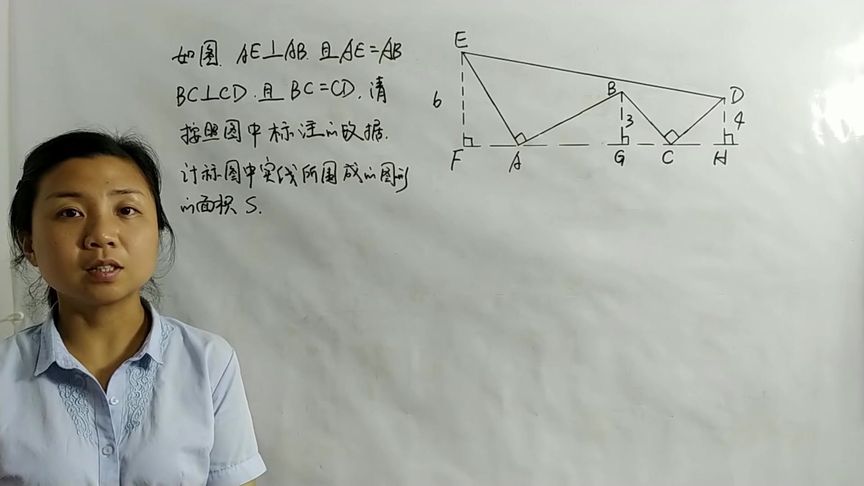 如图. AE⊥AB. 且AE=AB
BC⊥CD. 且BC=CD. 请
按照图中标注的数据.
计标图中实线所围成的图形
的面积S.
E
B
D
6
3
4
F
A
G
C
H